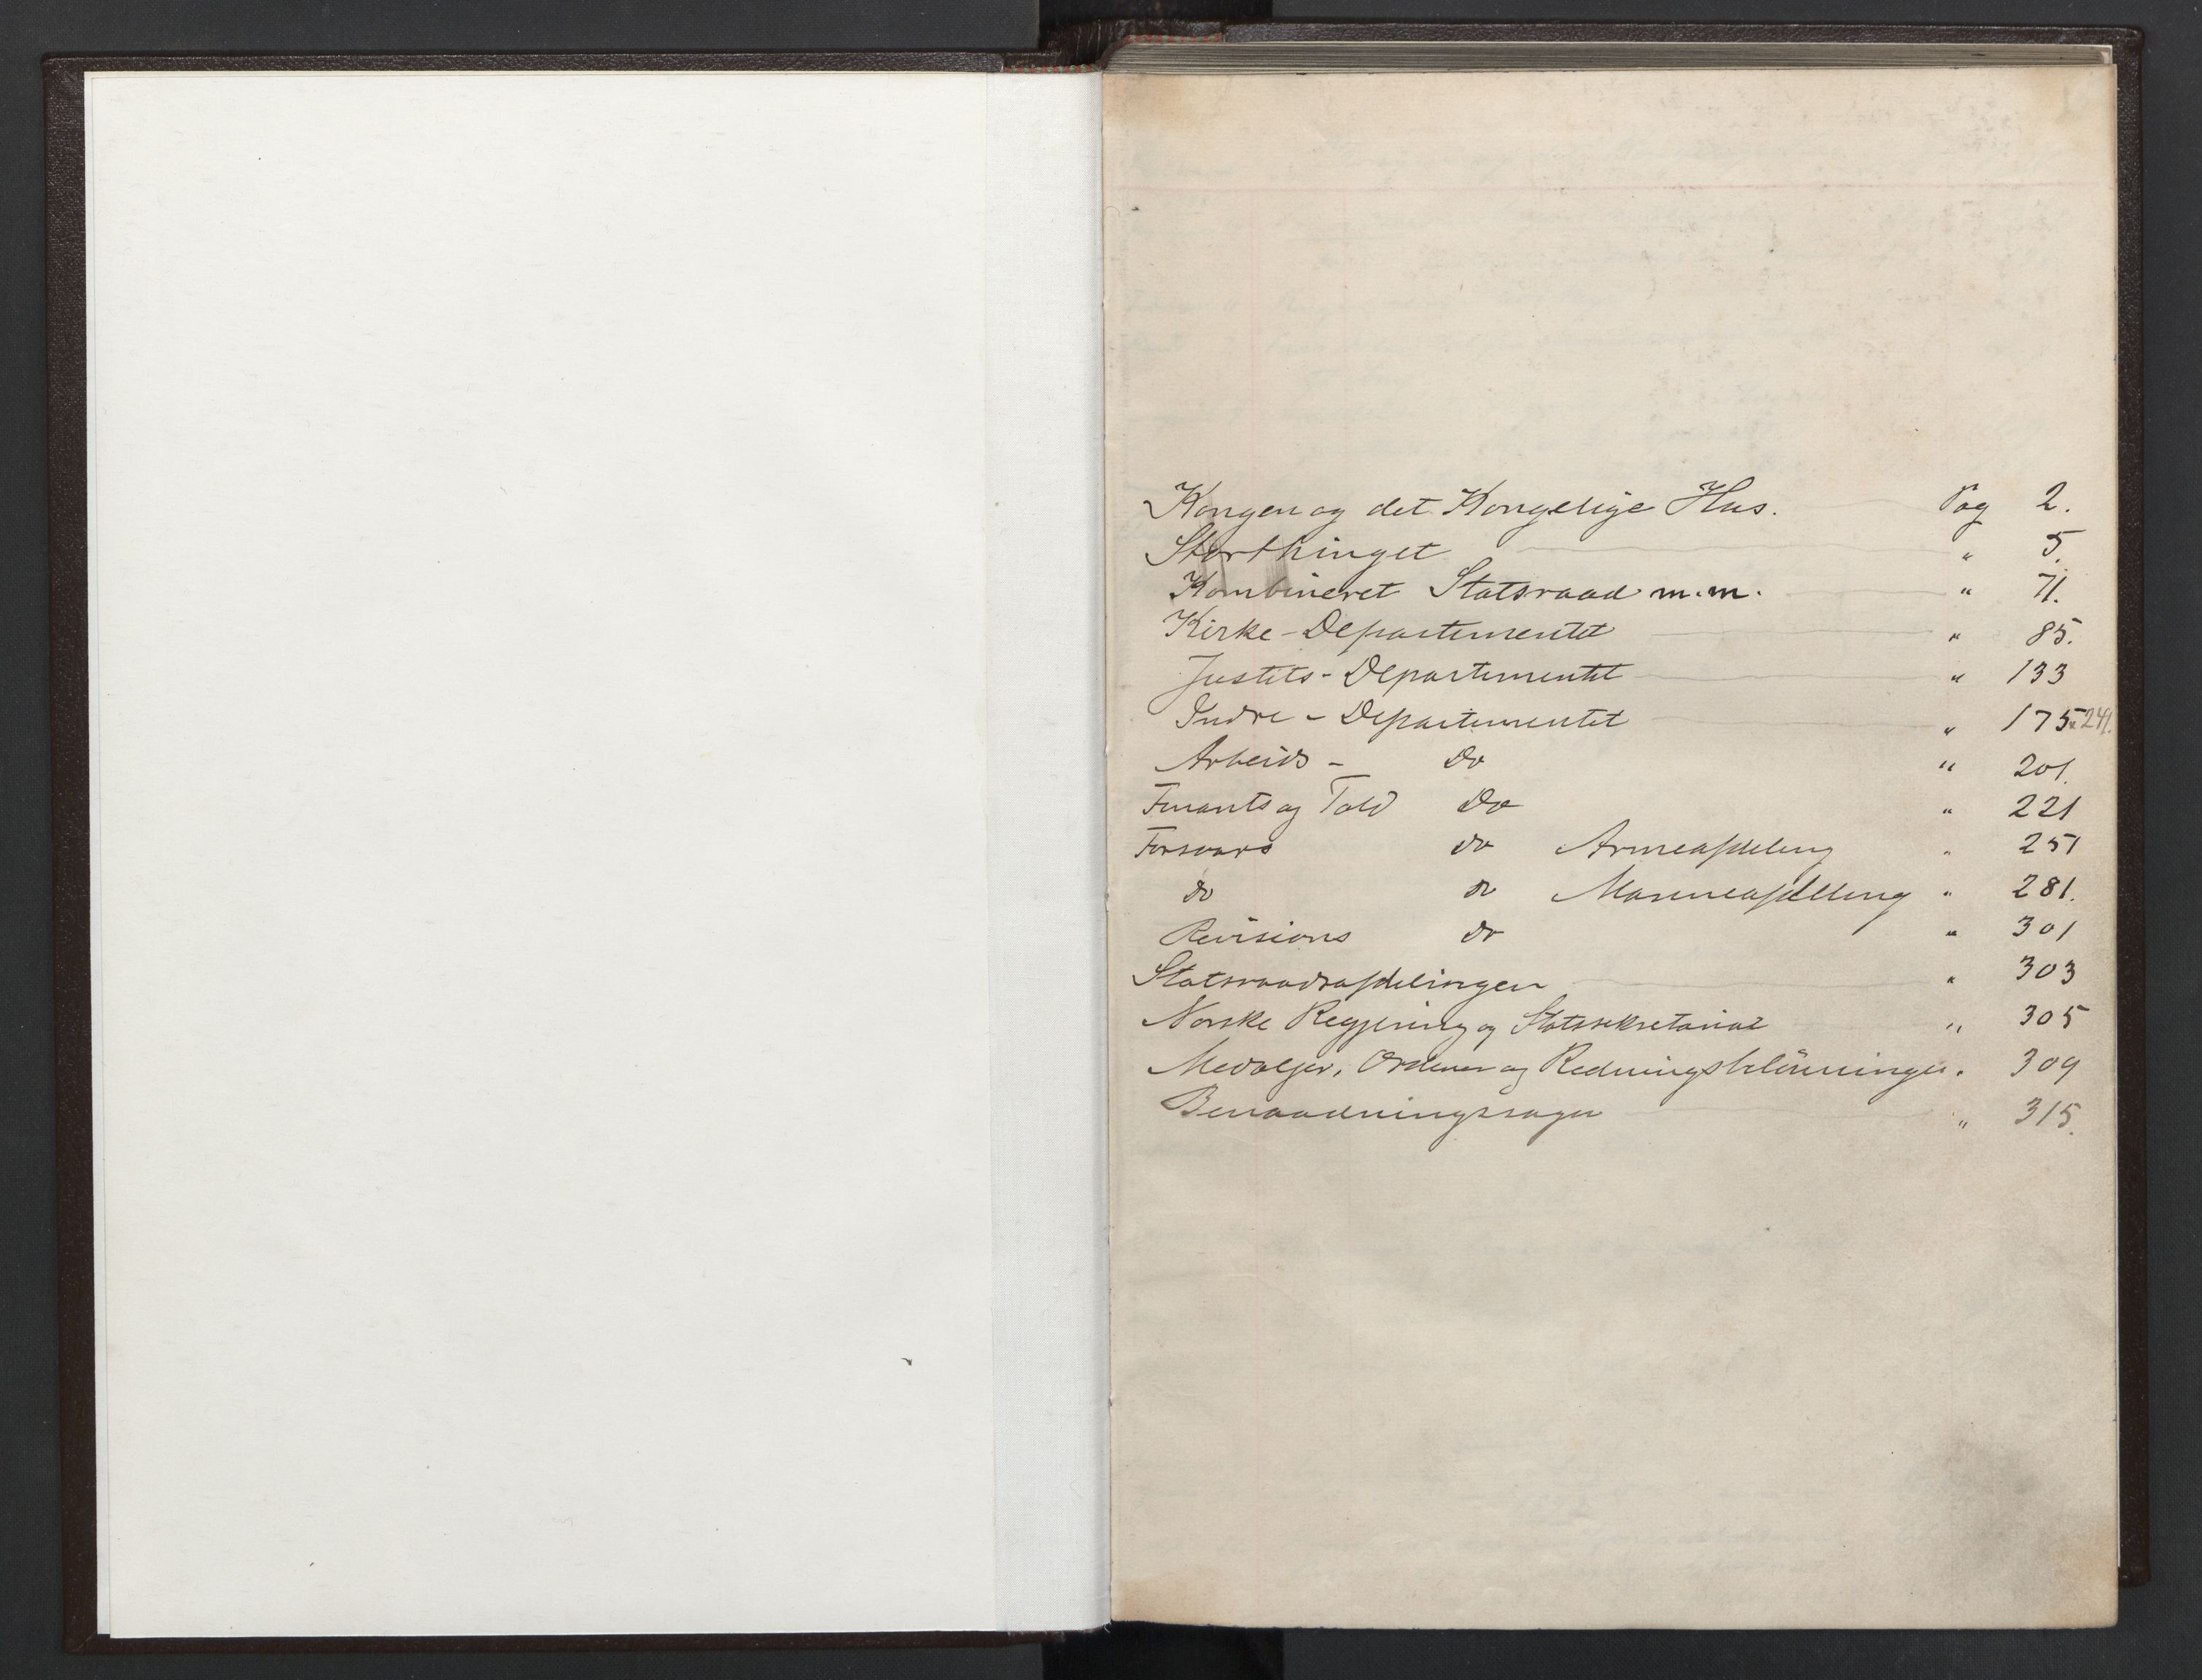 Kongen og det Kongelige Hus. Pag 2.
Storthinget " 5.
Kombineret Statsraad m.m. " 71.
Kirke-Departementet " 85.
Justits-Departementet " 133
Indre-Departementet " 175 249.
Arbeids- Do " 201.
Finants og Told Do " 221
Forsvars do Armeafdeling " 251
do do Marineafdeling " 281.
Revisions do " 301
Statsraadsafdelingen " 303
Norske Regjering og Statssekretariat " 305
Medaljer, Ordener og Redningsbelönninger " 309
Benaadningssager " 315.